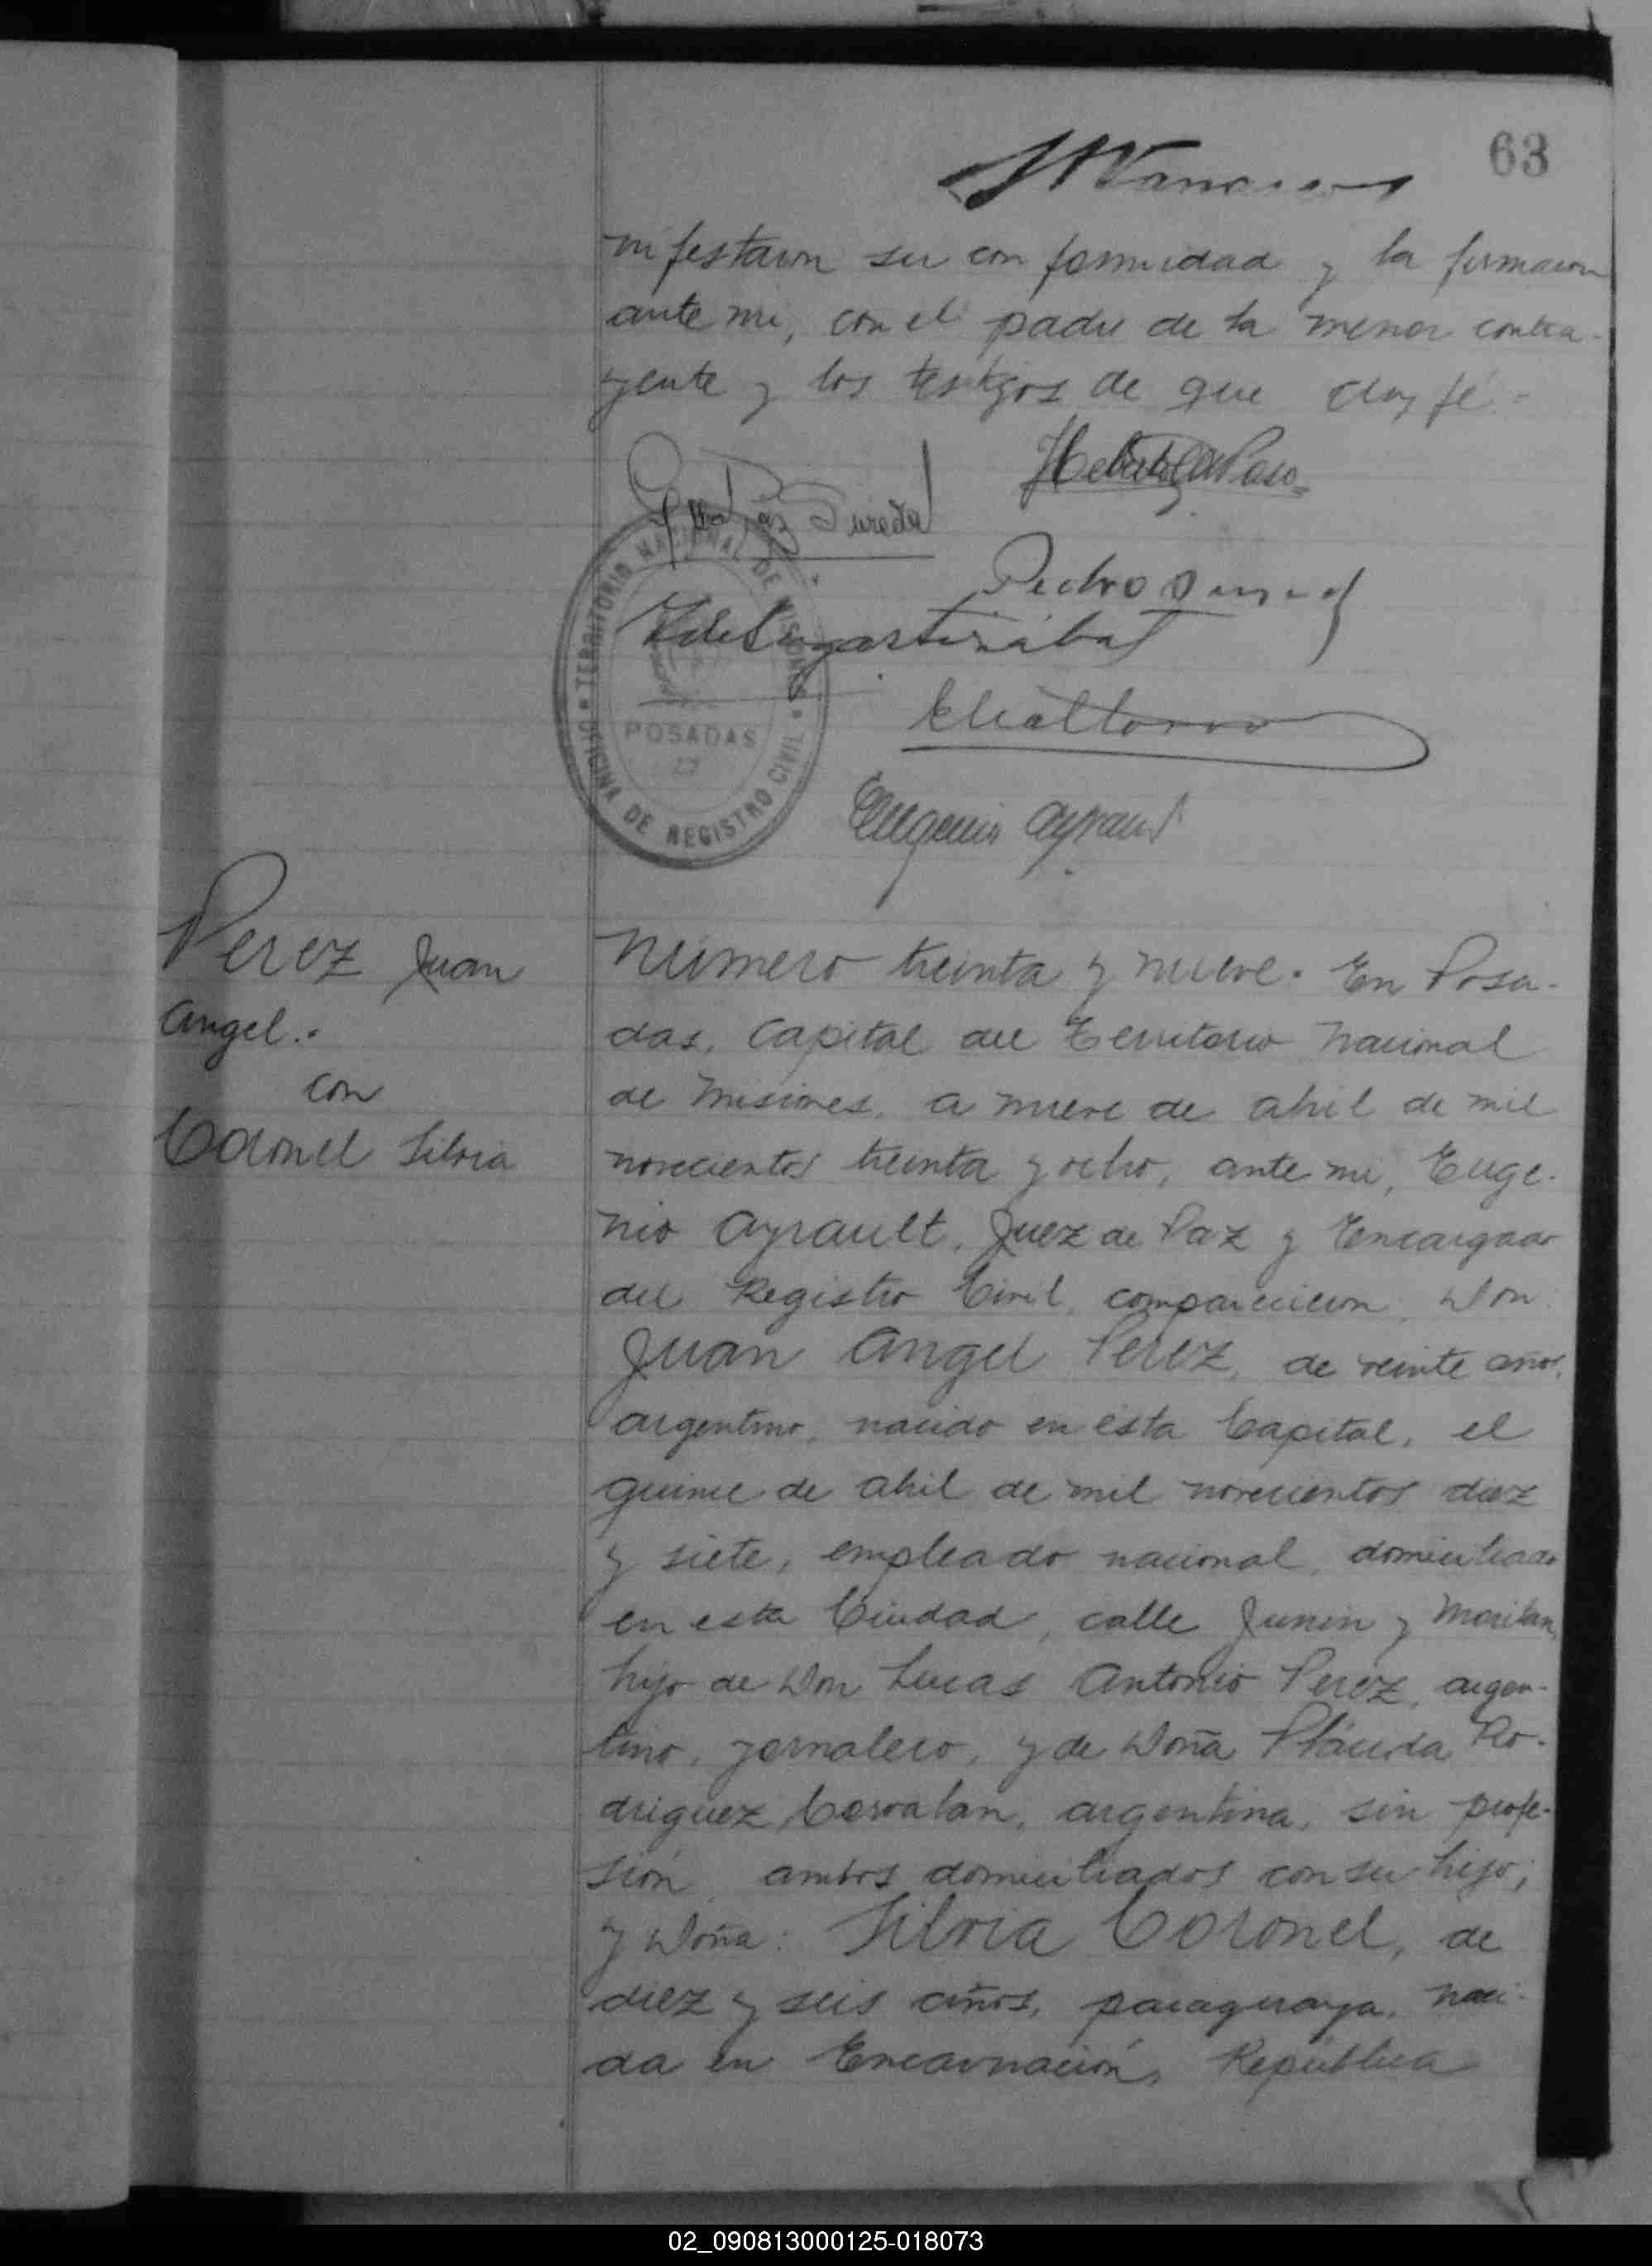 63
nifestaron su conformidad y la firmaron
ante mi, con el padre de la menor contra-
yente y los testigos de que doy fé-
Pedro
TERRITORIO NACIONAL DE MISIONES
OFICINA DE REGISTRO CIVIL
POSADAS
Eugenio Ayrault
Perez Juan
Angel.-
con
Coronel Silvia
Número treinta y nueve. En Posa-
das, Capital del Territorio Nacional
de Misiones, a nueve de abril de mil
novecientos treinta y ocho, ante mi, Euge-
nio Ayrault, Juez de Paz y Encargado
del Registro Civil, comparecieron: Don
Juan Angel Perez, de veinte años,
argentino, nacido en ésta Capital, el
quince de abril de mil novecientos diez
y siete, empleado nacional, domiciliado
en esta Ciudad, calle Junin y Moritan,
hijo de Don Lucas Antonio Perez, argen-
tino, jornalero, y de Doña Plácida Ro-
driguez Corvalan, argentina, sin profe-
sión, ambos domiciliados con su hijo;
y Doña: Silvia Coronel, de
diez y seis años, paraguaya, naci-
da en Encarnación, República
02_090813000125-018073